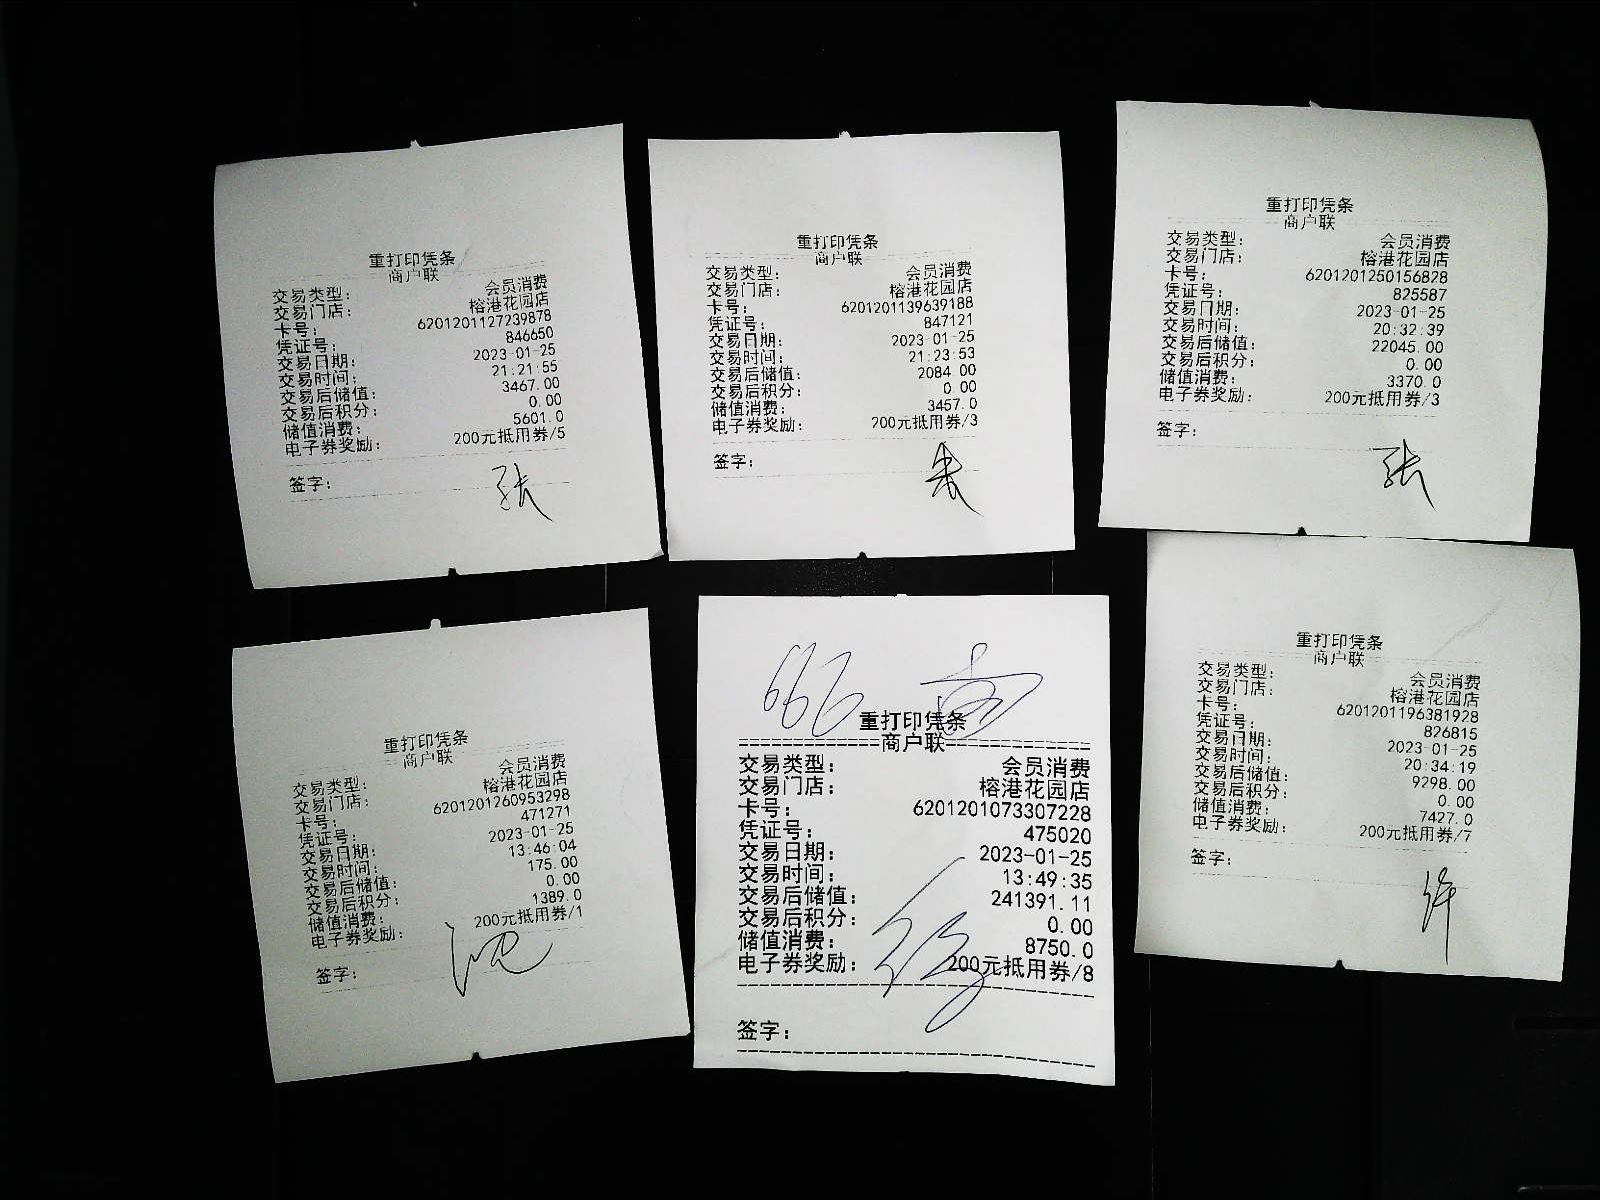 重打印凭条
商户联
交易类型: 会员消费
交易门店: 榕港花园店
卡号: 6201201127239878
凭证号: 846650
交易日期: 2023-01-25
交易时间: 21:21:55
交易后储值: 3467.00
交易后积分: 0.00
储值消费: 5601.0
电子券奖励: 200元抵用券/5
签字: 张
重打印凭条
商户联
交易类型: 会员消费
交易门店: 榕港花园店
卡号: 6201201139639188
凭证号: 847121
交易日期: 2023-01-25
交易时间: 21:23:53
交易后储值: 2084.00
交易后积分: 0.00
储值消费: 3457.0
电子券奖励: 200元抵用券/3
签字: 朱
重打印凭条
商户联
交易类型: 会员消费
交易门店: 榕港花园店
卡号: 6201201250156828
凭证号: 825587
交易日期: 2023-01-25
交易时间: 20:32:39
交易后储值: 22045.00
交易后积分: 0.00
储值消费: 3370.0
电子券奖励: 200元抵用券/3
签字: 张
重打印凭条
商户联
交易类型: 会员消费
交易门店: 榕港花园店
卡号: 6201201260953298
凭证号: 471271
交易日期: 2023-01-25
交易时间: 13:46:04
交易后储值: 175.00
交易后积分: 0.00
储值消费: 1389.0
电子券奖励: 200元抵用券/1
签字: 沈
666
重打印凭条
商户联
交易类型: 会员消费
交易门店: 榕港花园店
卡号: 6201201073307228
凭证号: 475020
交易日期: 2023-01-25
交易时间: 13:49:35
交易后储值: 241391.11
交易后积分: 0.00
储值消费: 8750.0
电子券奖励: 200元抵用券/8
签字:
重打印凭条
商户联
交易类型: 会员消费
交易门店: 榕港花园店
卡号: 6201201196381928
凭证号: 826815
交易日期: 2023-01-25
交易时间: 20:34:19
交易后储值: 9298.00
交易后积分: 0.00
储值消费: 7427.0
电子券奖励: 200元抵用券/7
签字: 许